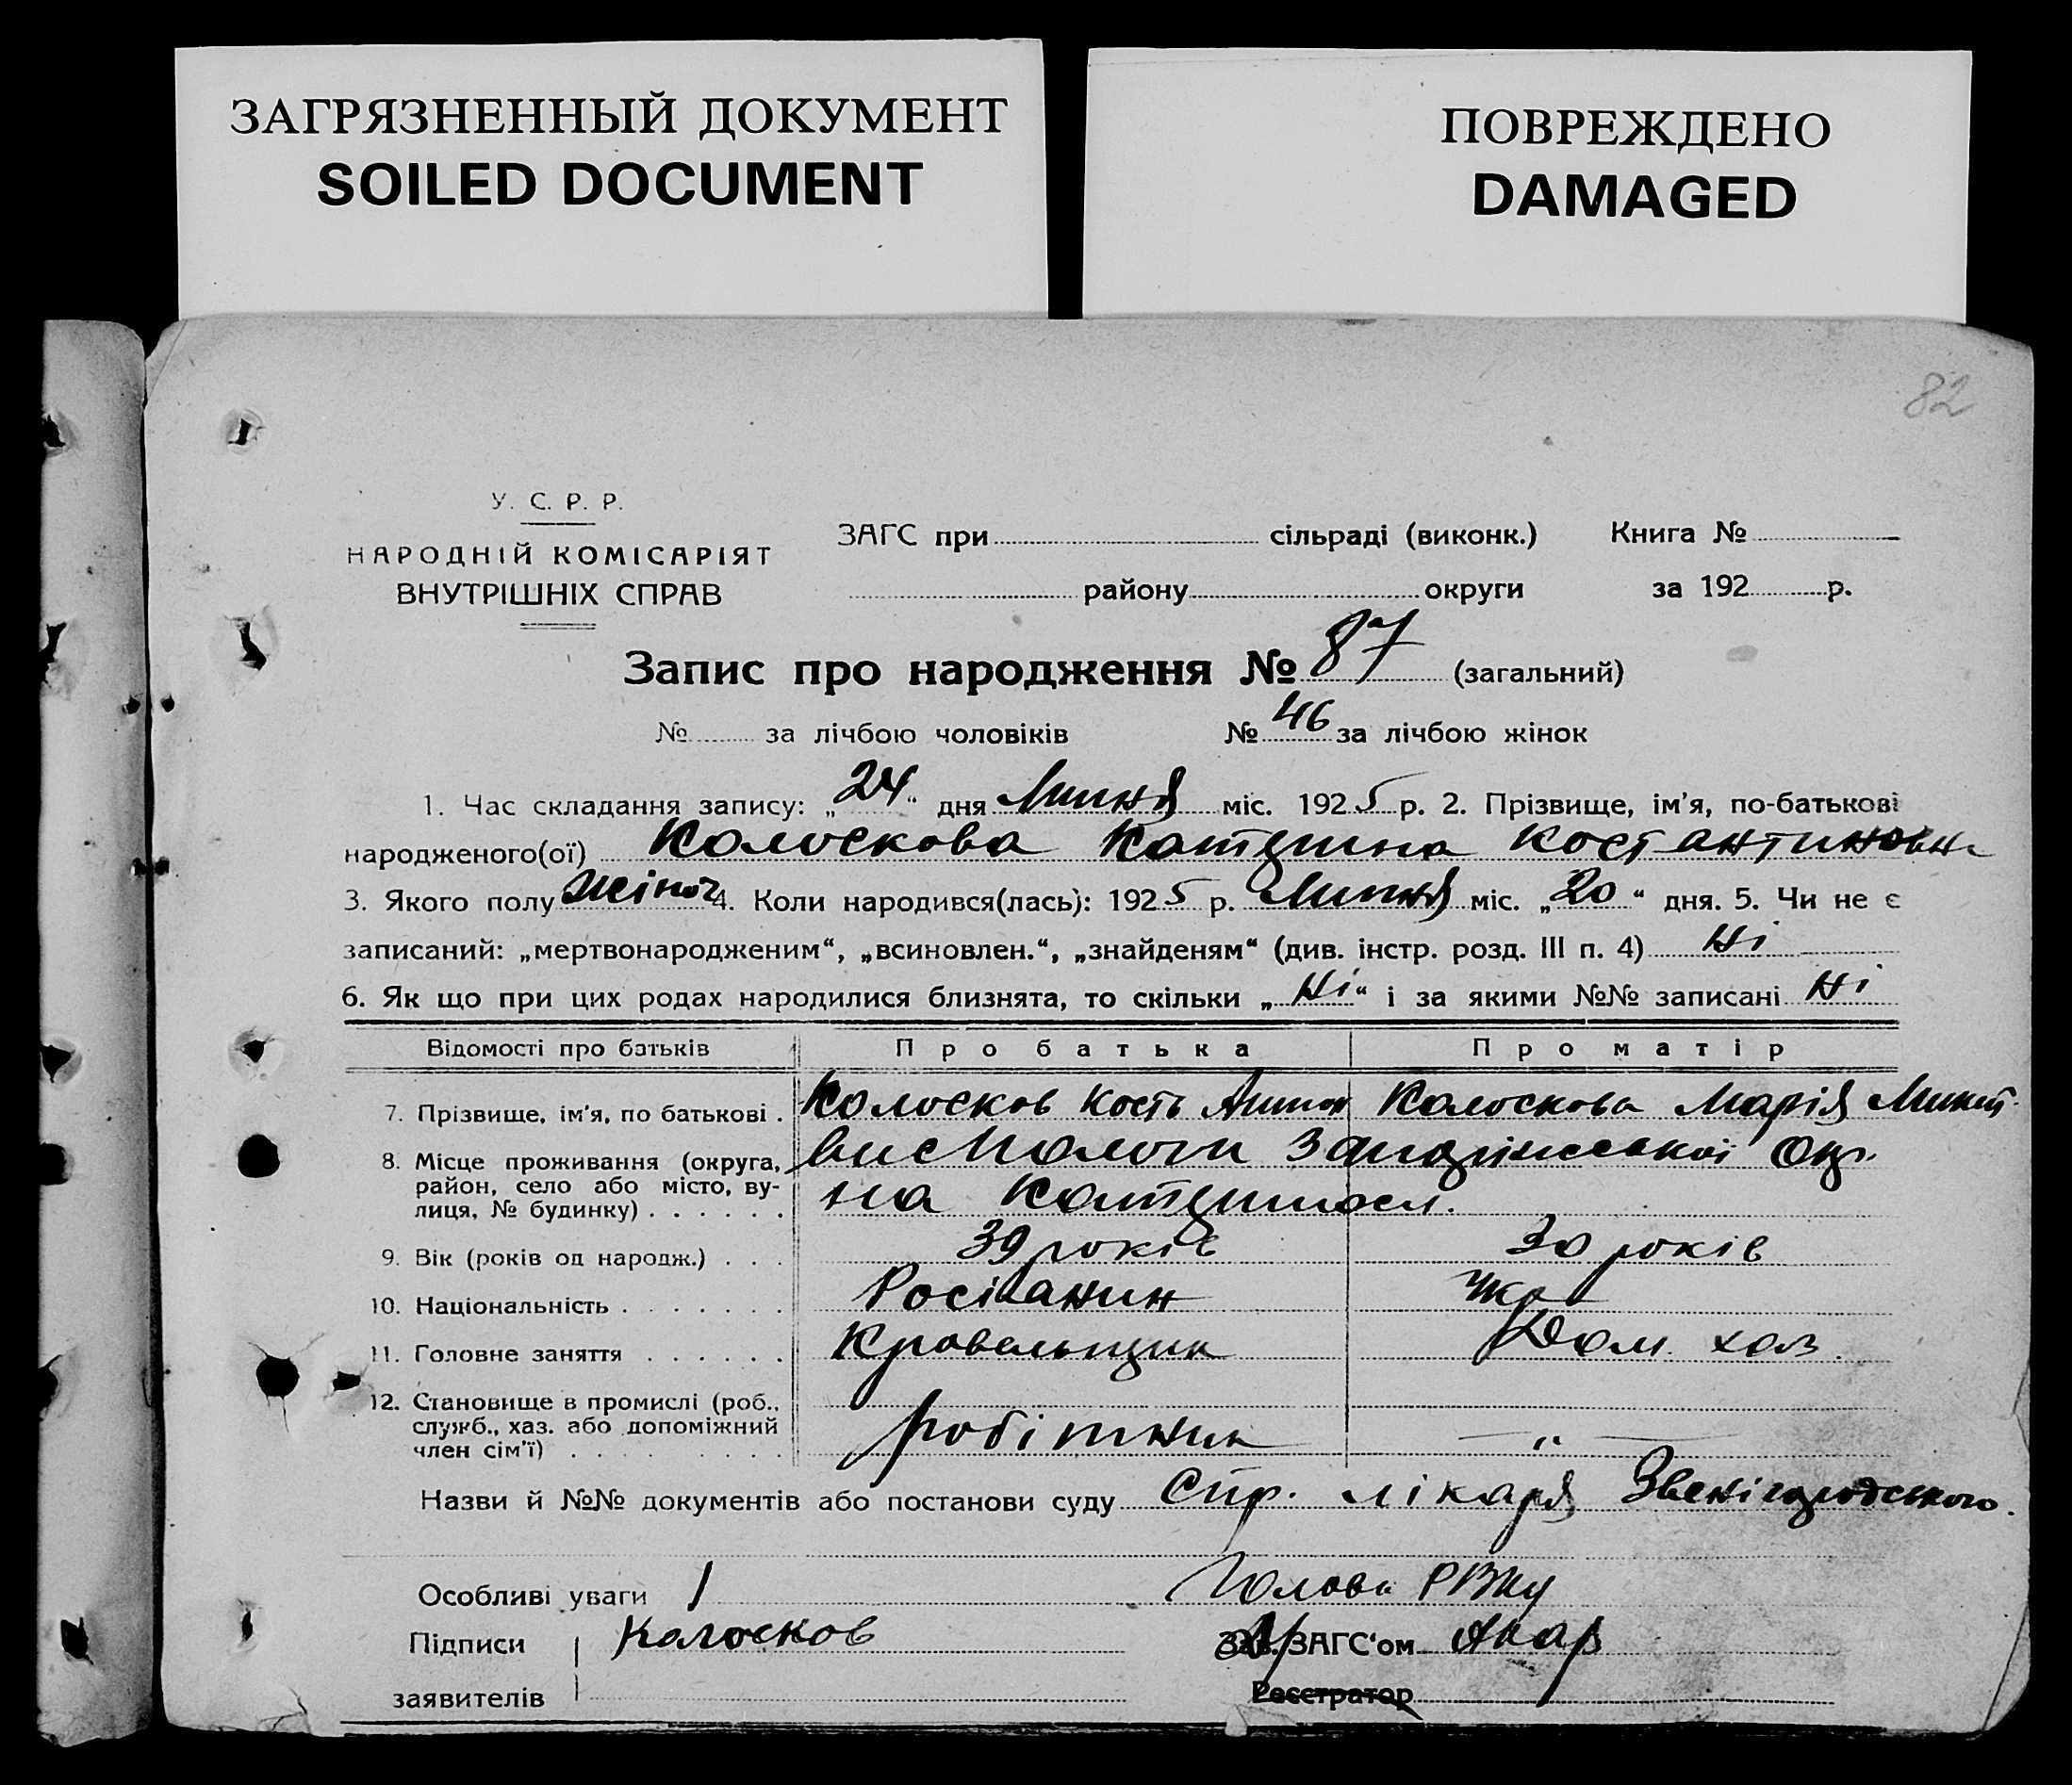 ЗАГРЯЗНЕННЫЙ ДОКУМЕНТ
SOILED DOCUMENT
ПОВРЕЖДЕНО
DAMAGED
82
У. С. Р. Р.
НАРОДНІЙ КОМІСАРІЯТ
ВНУТРІШНІХ СПРАВ
ЗАГС при сільраді (виконк.) Книга №
району округи за 192 р.
Запис про народження № 87 (загальний)
№ за лічбою чоловіків № 46 за лічбою жінок
1. Час складання запису: „24“ дня Липня міс. 1925 р. 2. Прізвище, ім'я, по-батькові
народженого(ої) Колоскова Катерина Костантиновн
3. Якого полу жіноч 4. Коли народився(лась): 1925 р. Липня міс. „20“ дня. 5. Чи не є
записаний: „мертвонародженим“, „всиновлен.“, „знайденям“ (див. інстр. розд. III п. 4) Ні
6. Як що при цих родах народилися близнята, то скільки „Ні“ і за якими №№ записані Ні
Відомості про батьків Про батька Про матір
7. Прізвище, ім'я, по батькові . Колосков Кость Колоскова Марія Микит
8. Місце проживання (округа, Запорізької Окр.
район, село або місто, ву-
лиця, № будинку) . . . . . . на
9. Вік (років од народж.) . . . 39 років 30 років
10. Національність . . . . . . . Росіанин Укр
11. Головне заняття . . . . . . Кровельщик Дом. хоз
12. Становище в промислі (роб.,
служб., хаз. або допоміжний
член сім'ї) . . . . . . . . . робітник — „ —
Назви й №№ документів або постанови суду Спр. лікаря Звенігородського.
Особливі уваги Голова РВКу
Підписи Колосков Зав. ЗАГС'ом
заявителів Реєстратор